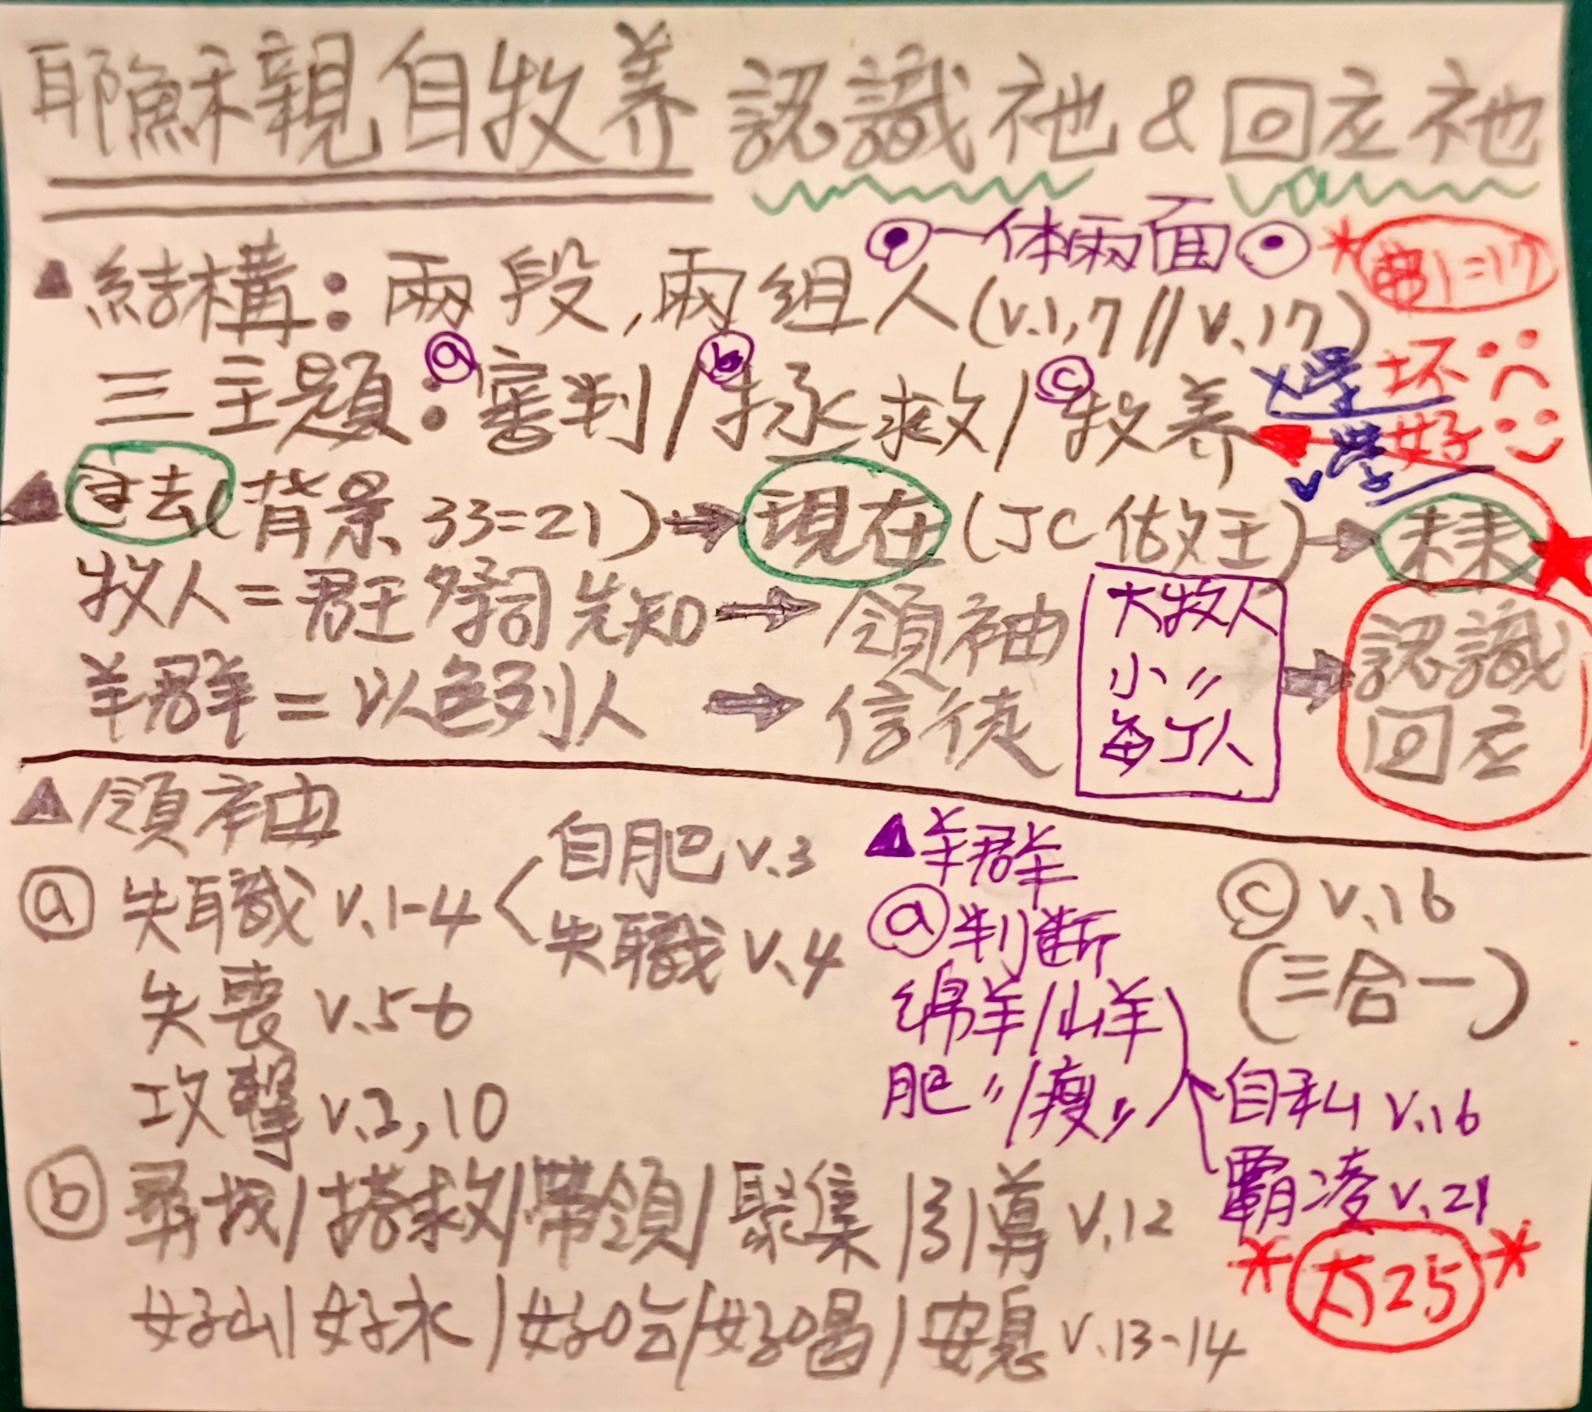 耶穌親自牧养 認識祂 & 回应祂
一体兩面
結構：兩段,兩组人(v.1,7 // v.17)
1=17
三主題：ⓐ審判/ⓑ拯救/ⓒ牧养
x学 坏
v学 好
过去(背景 33=21)→現在(JC做王)→未来
牧人=君王 祭司 先知→領袖
羊群=以色列人→信徒
大牧人
小〃
每个人
→認識
回应
▲領袖
ⓐ失職 v.1-4
自肥 v.3
失職 v.4
失喪 v.5-6
攻擊 v.2,10
ⓑ尋找/搭救/帶領/聚集/引導 v.12
好山/好水/好吃/好喝/安息 v.13-14
▲羊群
ⓐ判断
绵羊/山羊
肥〃/瘦〃
自私 v.16
霸凌 v.21
ⓒ v.16
(三合一)
*太25*